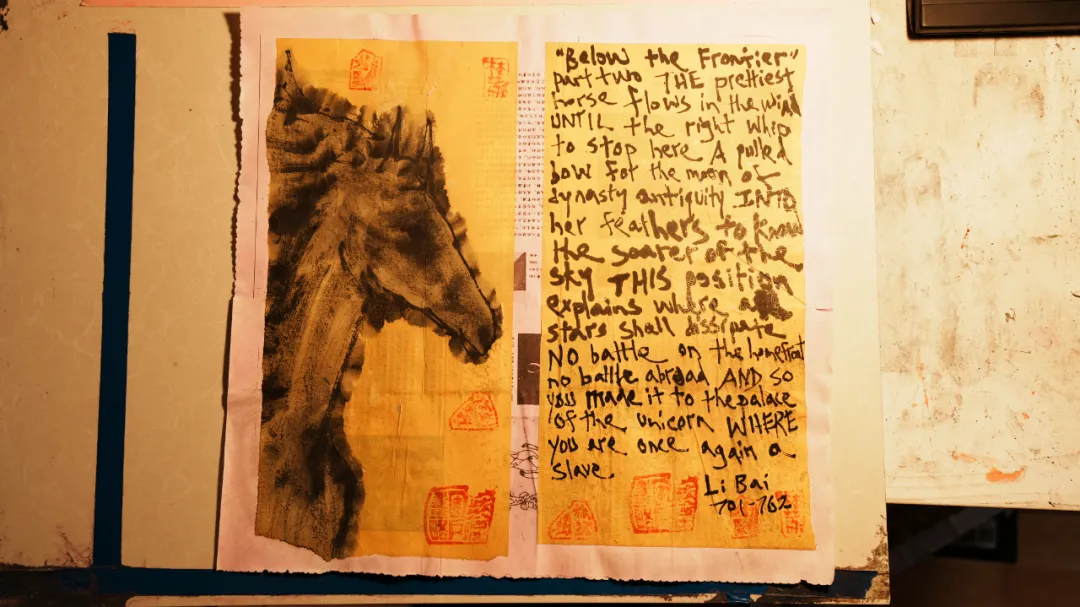 "Below the Frontier"
part two THE prettiest
horse flows in the wind
UNTIL the right whip
to stop here A pulled
bow for the moon of
dynasty antiquity INTO
her feathers to know
the soarer of the
sky THIS position
explains where all
stars shall dissipate
No battle on the homefront
no battle abroad AND SO
you made it to the palace
of the unicorn WHERE
you are once again a
slave.
Li Bai
701-762